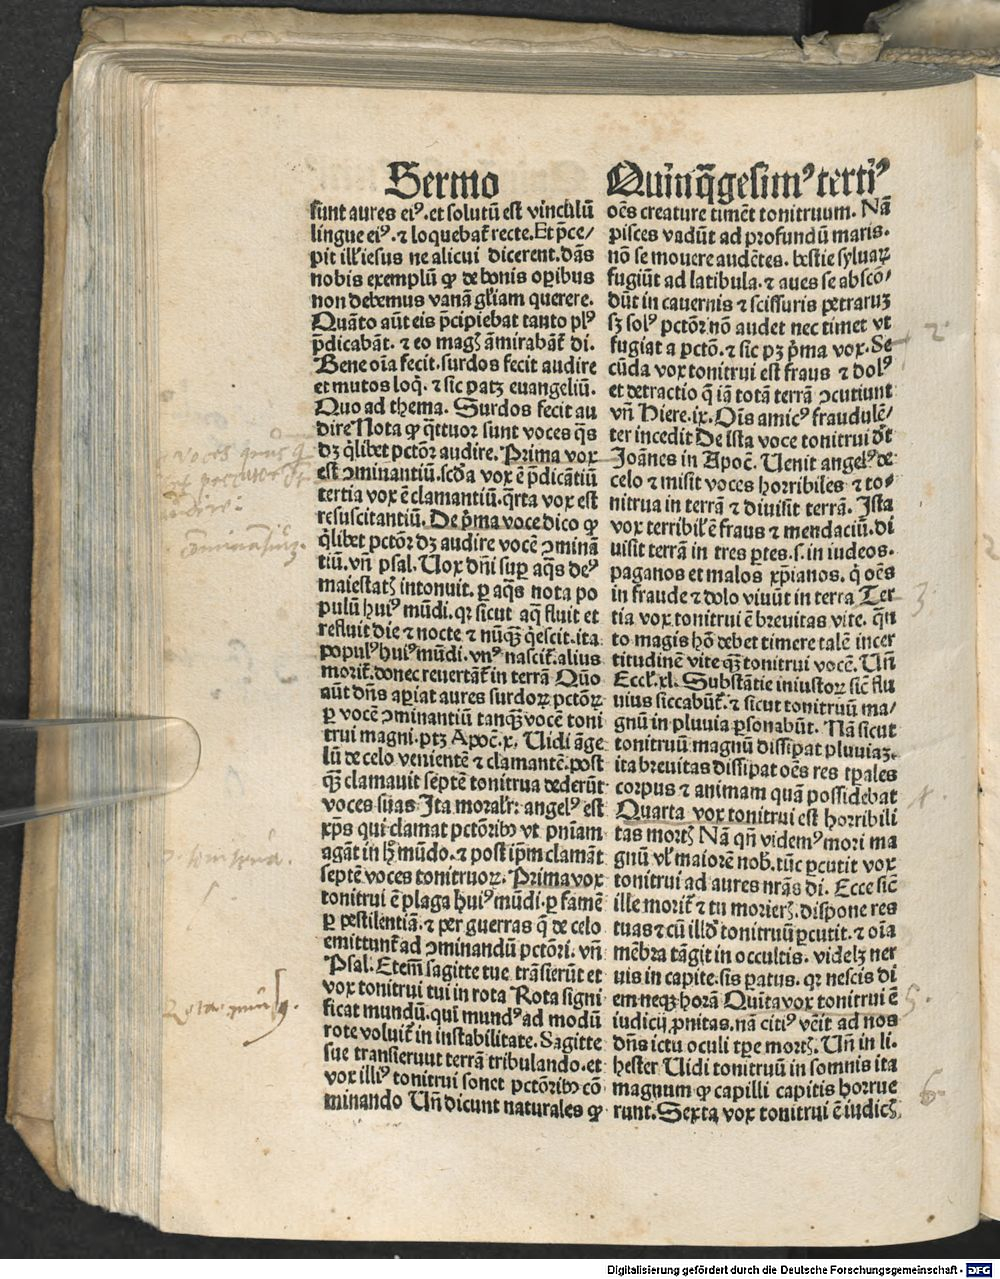 Sermo
sunt aures ei⁹. et solutū est vinculū
lingue ei⁹. ⁊ loquebat̄ recte. Et p̄ce/
pit ill̓ iesus ne alicui dicerent. dās
nobis exemplū ꝙ de bonis oꝑibus
non debemus vanā gl̓iam querere.
Quāto aūt eis p̄cipiebat tanto pl⁹
p̄dicabāt. ⁊ eo magꝭ āmirabāt̄ di.
Bene oīa fecit. surdos fecit audire
et mutos loq̄. ⁊ sic patꝫ euangeliū.
Quo ad thema. Surdos fecit au
dire Nota ꝙ q̄ttuor sunt voces q̄s
dꝫ q̓libet pctōr audire. Prima vox
est ↄminantiū. scďa vox ē p̄dicātiū
tertia vox ē clamantiū. q̄rta vox est
resuscitantiū. De p̓ma voce dico ꝙ
q̓libet pctōr dꝫ audire vocē ↄminā
tiū. vn̄ psal. Uox dn̄i suꝑ aq̄s de⁹
maiestatꝭ intonuit. ꝑ aq̄s nota po
pulū hui⁹ mūdi. qꝛ sicut aq̄ fluit et
refluit die ⁊ nocte ⁊ nūqꝫ q̓escit. ita
popul⁹ hui⁹ mūdi. vn⁹ nascit̄. alius
morit̄. donec reuertāt̄ in terrā Quo
aūt dn̄s aꝑiat aures surdoꝝ pctōꝝ
ꝑ vocē ↄminantiū tanqꝫ vocē toni
trui magni. ptꝫ Apoc̄. x. Uidi āge
lū de celo venientē ⁊ clamantē. post
qꝫ clamauit septē tonitrua dederūt
voces suas Ita moralr̄: angel⁹ est
xp̄s qui clamat pctōribꝰ vt pn̄iam
agāt in hꝭ mūdo. ⁊ post ip̄m clamāt
septē voces tonitruoꝝ. Prima vox
tonitrui ē plaga hui⁹ mūdi. ꝑ famē
ꝑ pestilentiā. ⁊ per guerras q̄ de celo
emittunt̄ ad ↄminandū pctōri. vn̄
Psal. Etem̄ sagitte tue trāsierūt et
vox tonitrui tui in rota Rota signi
ficat mundū. qui mund⁹ ad modū
rote voluit̄ in instabilitate. Sagitte
sue transierunt terrā tribulando. et
vox illi⁹ tonitrui sonet pctōribꝰ cō
minando Un̄ dicunt naturales ꝙ
Quīnq̄gesim⁹ terti⁹
oēs creature timēt tonitruum. Nā
pisces vadūt ad profundū maris.
nō se mouere audētes. bestie syluaꝝ
fugiūt ad latibula. ⁊ aues se abscō/
dūt in cauernis ⁊ scissuris petrarum
sꝫ sol⁹ pctōr nō audet nec timet vt
fugiat a pctō. ⁊ sic pꝫ p̓ma vox. Se
cūda vox tonitrui est fraus ⁊ dol⁹
et detractio q̄ iā totā terrā ↄcutiunt
vn̄ Hiere. ix. Oīs amic⁹ fraudulē/
ter incedit De ista voce tonitrui dr̄
Joānes in Apoc̄. Uenit angel⁹ de
celo ⁊ misit voces horribiles ⁊ to/
nitrua in terrā ⁊ diuisit terrā. Ista
vox terribil̓ ē fraus ⁊ mendaciū. di
uisit terrā in tres ꝑtes. s. in iudeos.
paganos et malos xp̄ianos. q̓ oēs
in fraude ⁊ dolo viuūt in terra Ter
tia vox tonitrui ē breuitas vite. q̄n
to magis hō debet timere talē incer
titudinē vite qꝫ tonitrui vocē. Un̄
Eccl̓. xl. Substātie iniustoꝝ sic̄ flu
uius siccabūt̄. ⁊ sicut tonitruū ma/
gnū in pluuia ꝑsonabūt. Nā sicut
tonitruū magnū dissipat pluuiaꝫ.
ita breuitas dissipat oēs res tꝑales
corpus ⁊ animam quā possidebat
Quarta vox tonitrui est horribili
tas mortꝭ Nā qn̄ videm⁹ mori ma
gnū vl̓ maiorē nob̄. tūc ꝑcutit vox
tonitrui ad aures nr̄as di. Ecce sic̄
ille morit̄ ⁊ tu morierꝭ. dispone res
tuas ⁊ cū illď tonitruū ꝑcutit. ⁊ oīa
mēbra tāgit in occultis. videlꝫ ner
uis in capite. sis ꝑatus. qꝛ nescis di
em neqꝫ horā Quīta vox tonitrui ē
iudicij ꝓnitas. nā citi⁹ vēit ad nos
dn̄s ictu oculi tꝑe mortꝭ. Un̄ in li.
hester Uidi tonitruū in somnis ita
magnum ꝙ capilli capitis horrue
runt. Sexta vox tonitrui ē iudicꝭ
2
3
4
5.
6